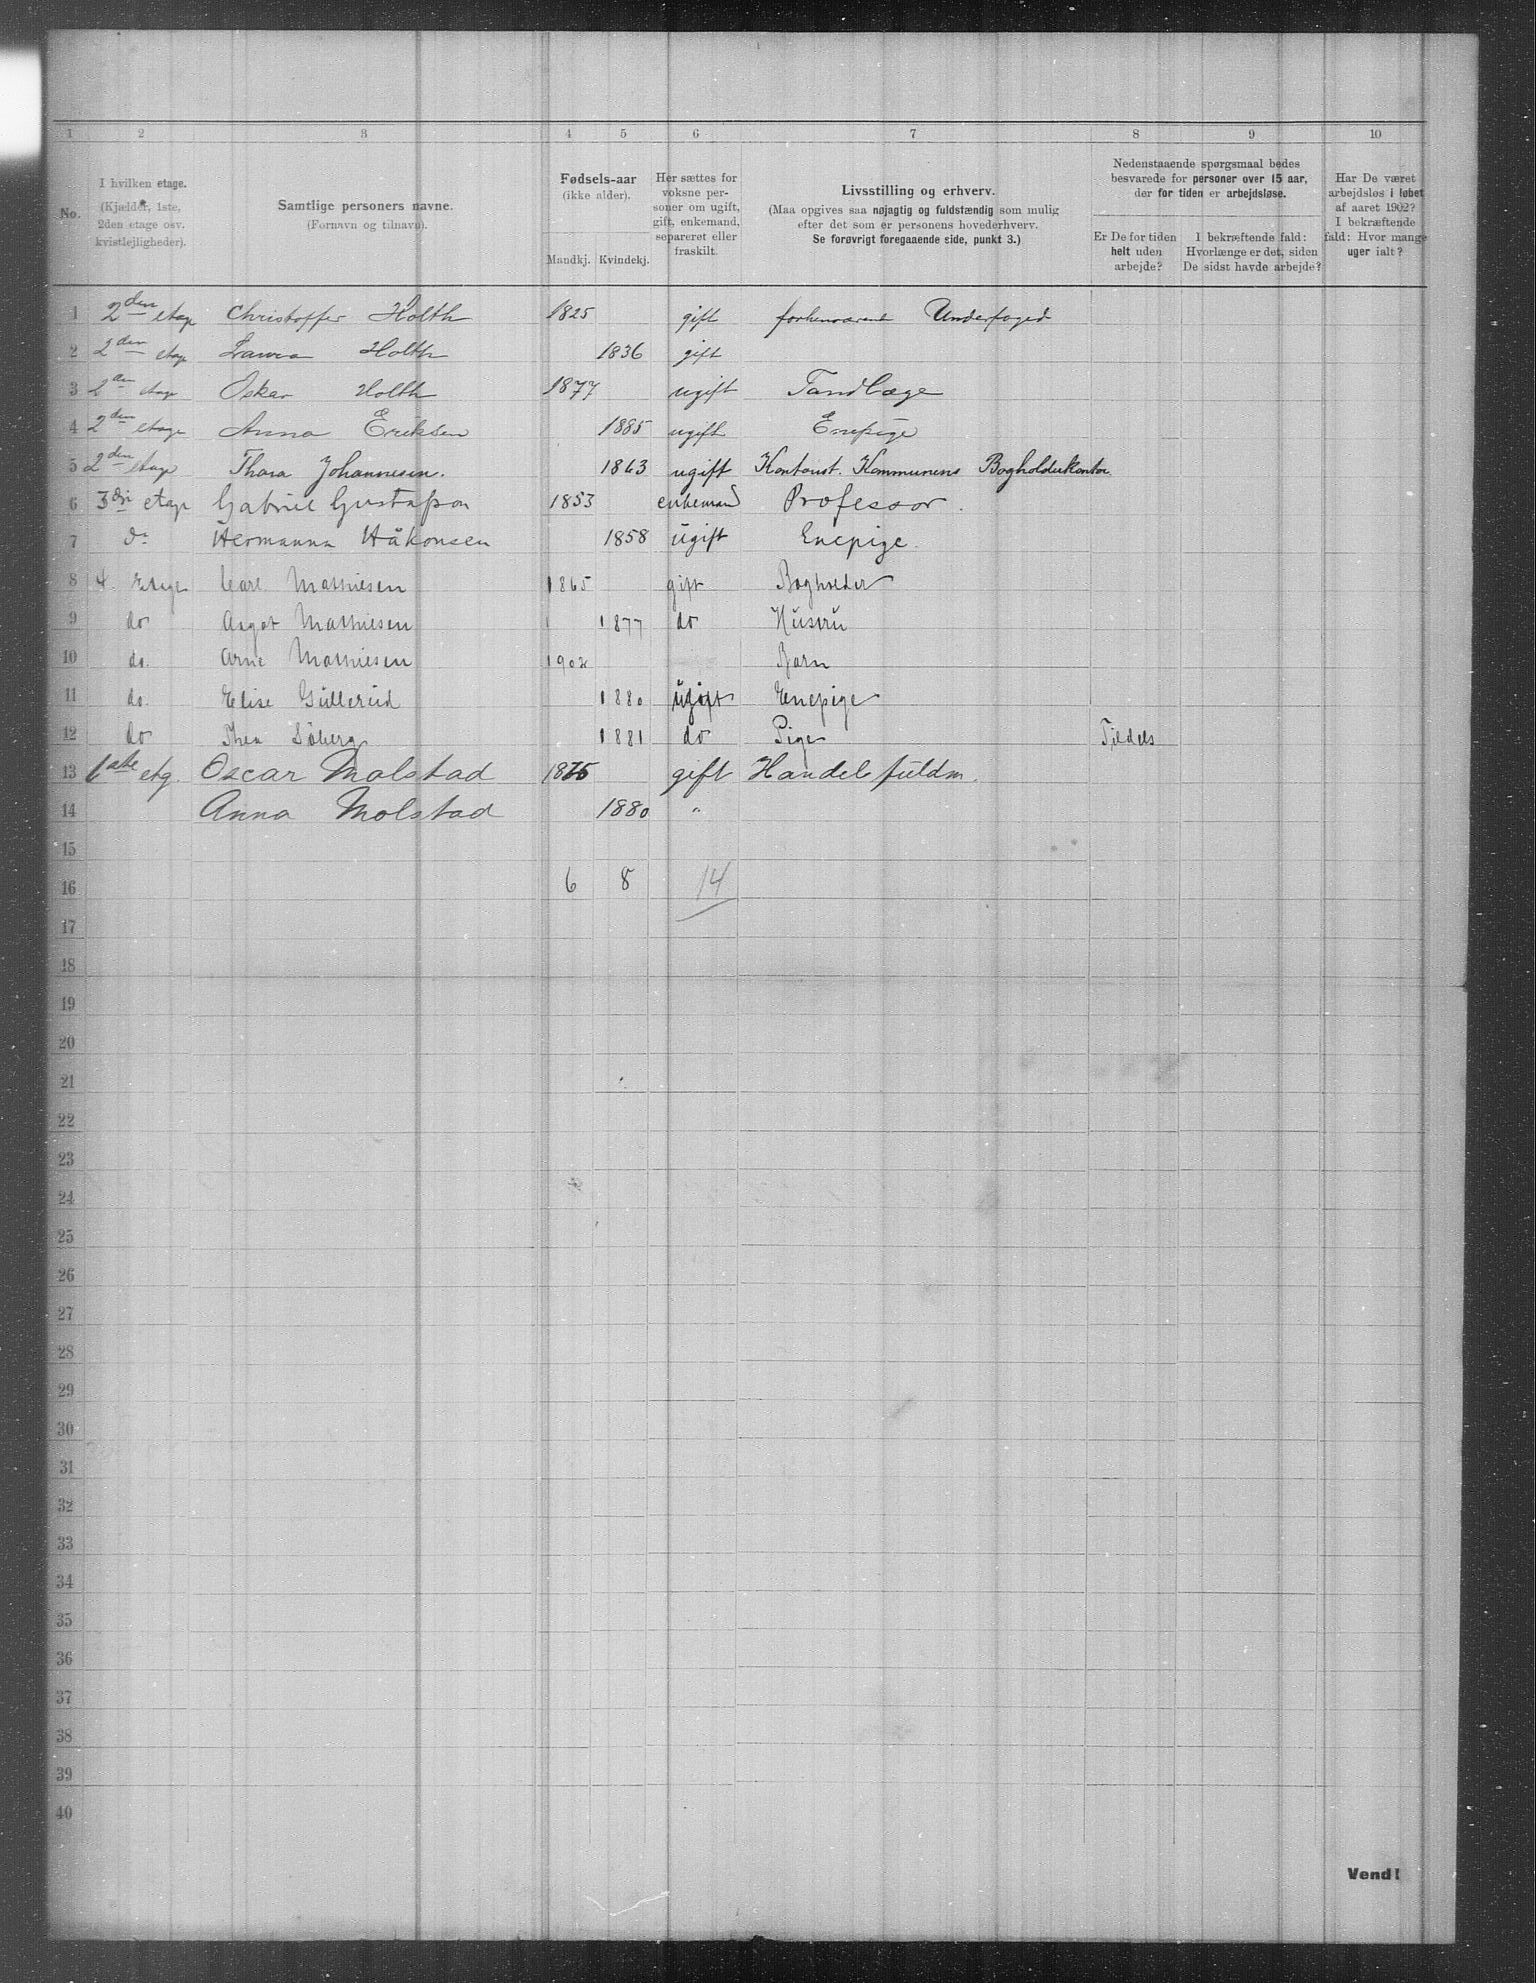 1 2 3 4 5 6 7 8 9 10
No.
I hvilken etage.
(Kjælder, 1ste,
2den etage osv.
kvistlejligheder).
Samtlige personers navne.
(Fornavn og tilnavn).
Fødsels-aar
(ikke alder).
Mandkj. Kvindekj.
Her sættes for
voksne per-
soner om ugift,
gift, enkemand,
separeret eller
fraskilt.
Livsstilling og erhverv.
(Maa opgives saa nøjagtig og fuldstændig som mulig
efter det som er personens hovederhverv.
Se forøvrigt foregaaende side, punkt 3.)
Nedenstaaende spørgsmaal bedes
besvarede for personer over 15 aar,
der for tiden er arbejdsløse.
Er De for tiden
helt uden
arbejde?
I bekræftende fald:
Hvorlænge er det, siden
De sidst havde arbejde?
Har De været
arbejdsløs i løbet
af aaret 1902?
I bekræftende
fald: Hvor mange
uger ialt?
1 2den etage Christoffer Holth 1825 gift forhenværende Underfoged
2 2den etage Laura Holth 1836 gift
3 2den etage Oskar Holth 1877 ugift Tandlæge
4 2den etage Anna Eriksen 1885 ugift Enepige
5 2den etage Thora Johannesen. 1863 ugift Kontorist. Kommunens Bogholderkontor
6 3die etage Gabriel Gustafson 1853 enkemand Professor.
7 do Hermanna Håkonsen 1858 ugift Enepige.
8 4. Etage Carl Mathiesen 1865 gift Bogholder
9 do Aagot Mathiesen 1 1877 do Hustru
10 do. Arne Mathiesen 1902 Barn
11 do. Elise Gullerud 1880 ugift Enepige
12 do Thea Söberg 1881 do Pige Tildels
13 1ste etg. Oscar Molstad 1875 gift Handelsfuldm.
14 Anna Molstad 1880 "
15
16 6 8 14
17
18
19
20
21
22
23
24
25
26
27
28
29
30
31
32
33
34
35
36
37
38
39
40
Vend!